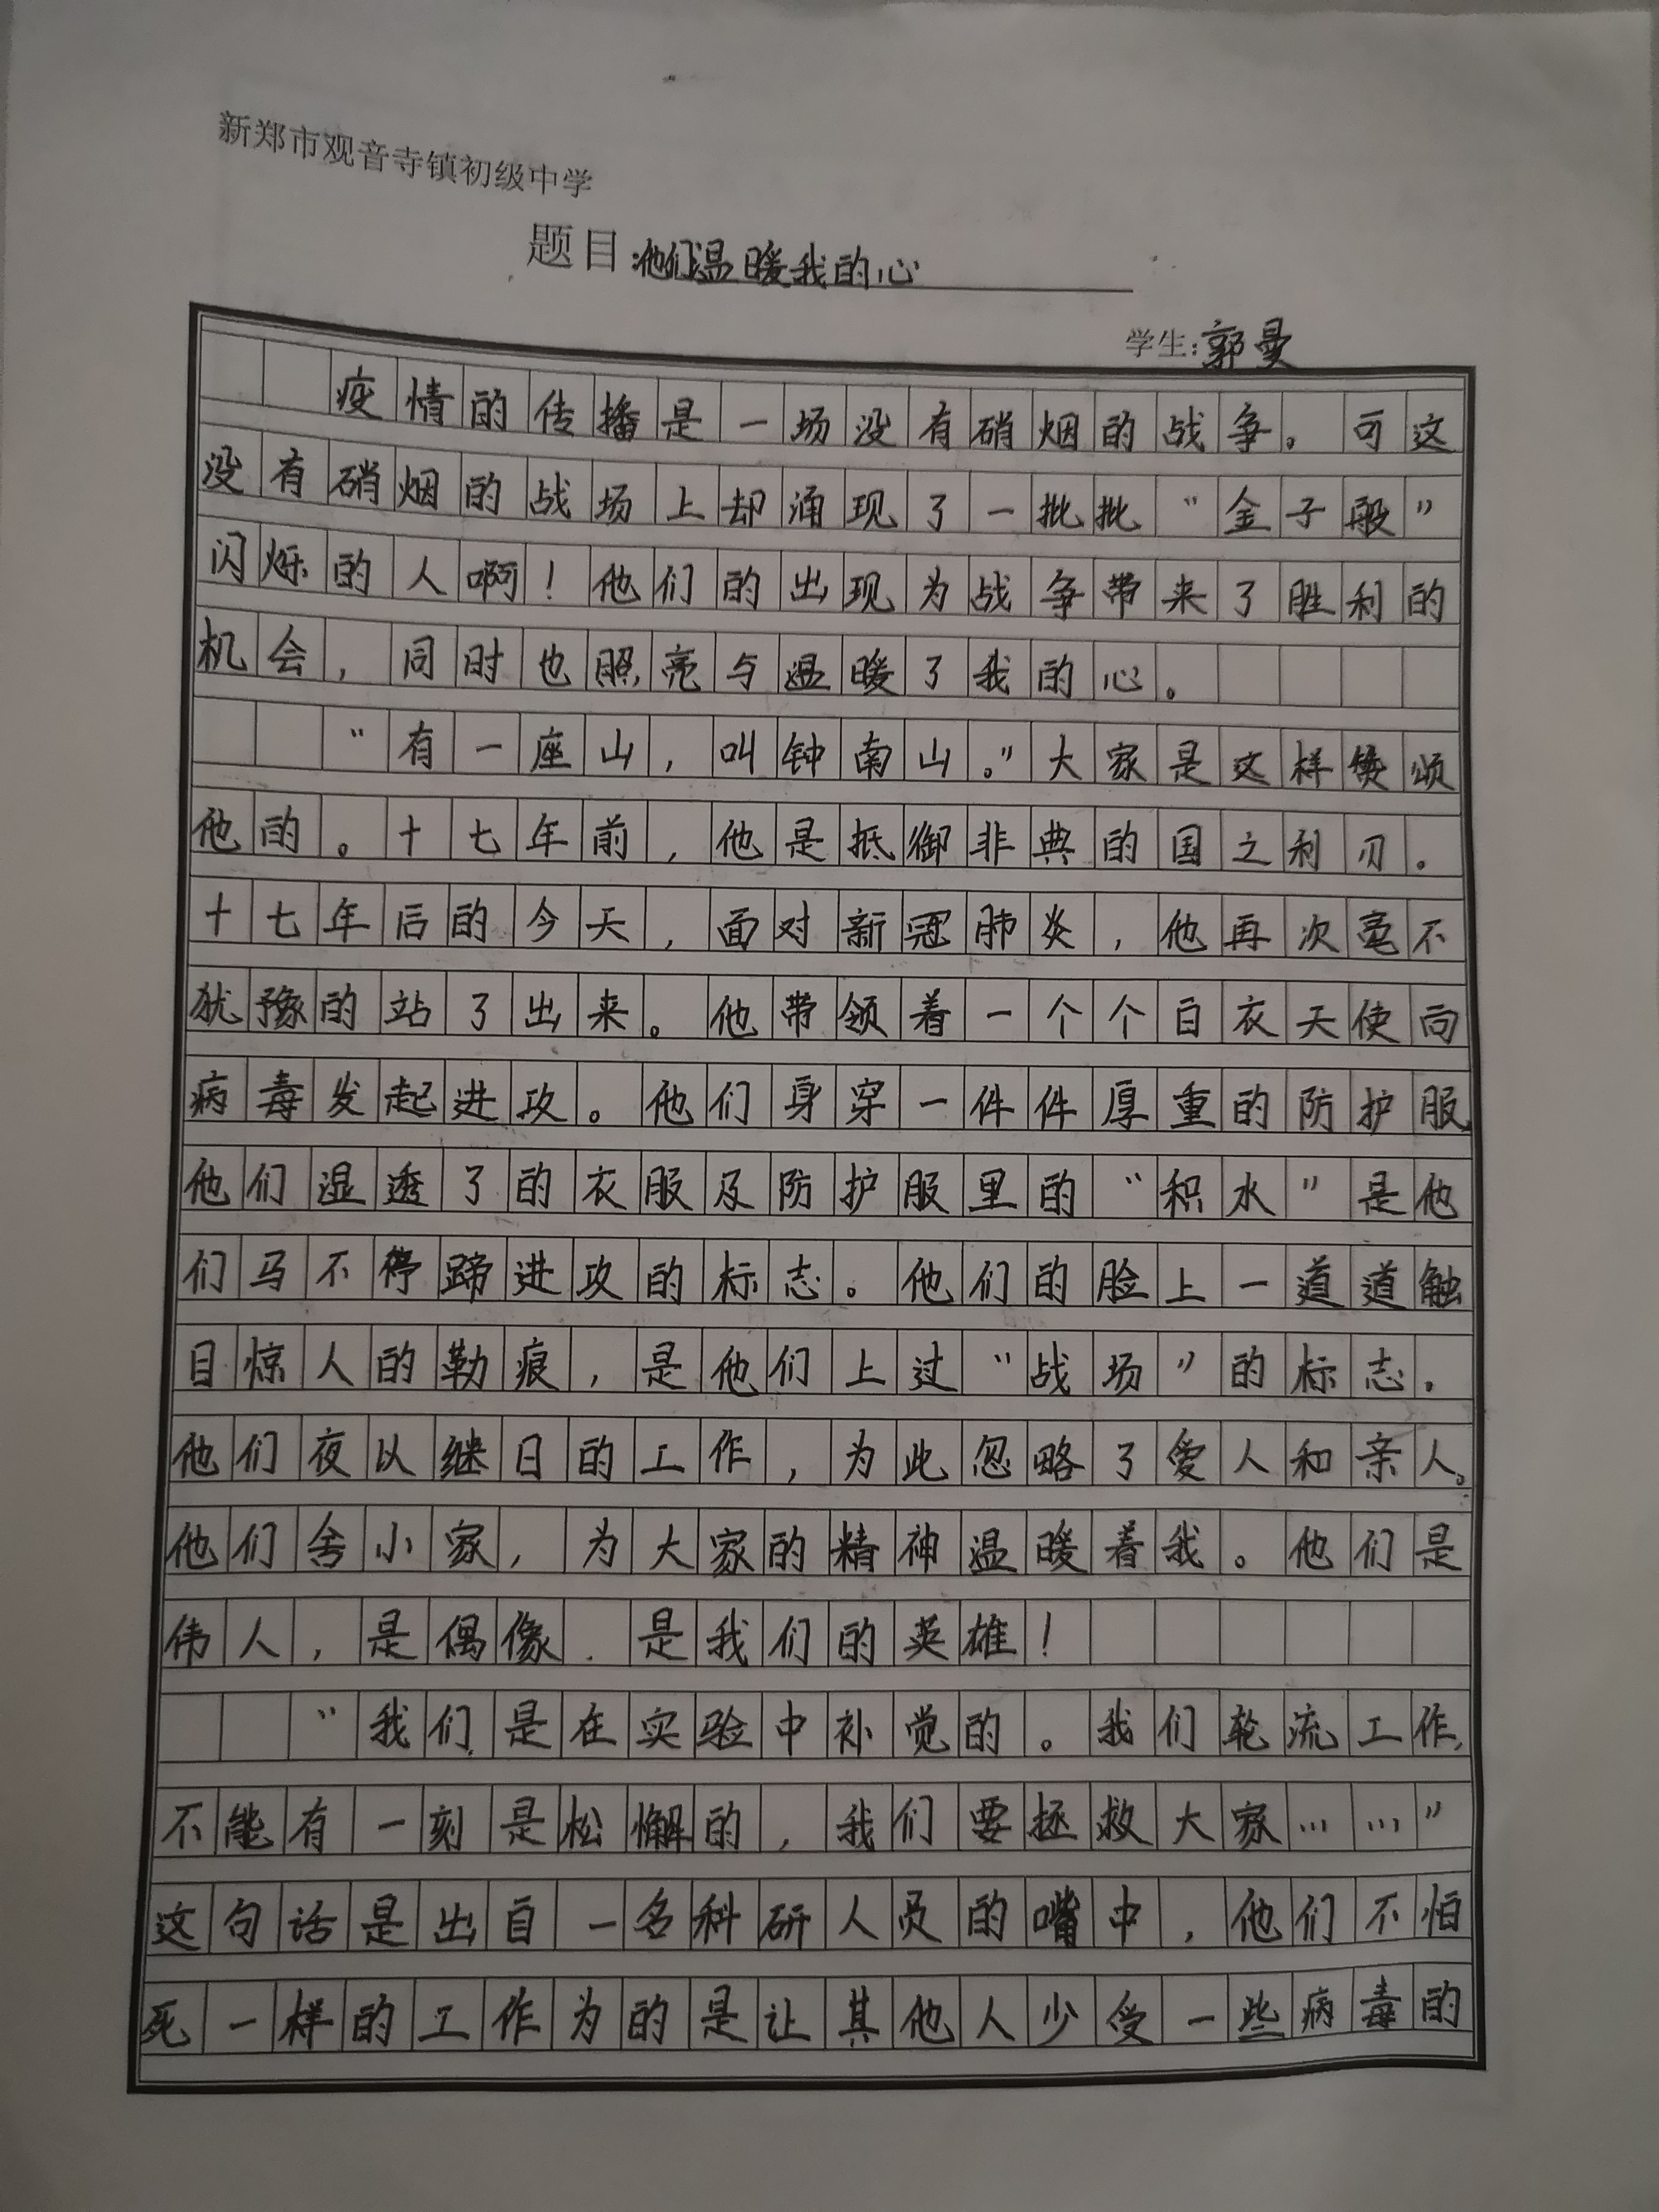 新郑市观音寺镇初级中学
题目:他们温暖我的心
学生:郭曼
疫情的传播是一场没有硝烟的战争。可这
没有硝烟的战场上却涌现了一批批“金子般”
闪烁的人啊!他们的出现为战争带来了胜利的
机会,同时也照亮与温暖了我的心。
“有一座山,叫钟南山。”大家是这样赞颂
他的。十七年前,他是抵御非典的国之利刃。
十七年后的今天,面对新冠肺炎,他再次毫不
犹豫的站了出来。他带领着一个个白衣天使向
病毒发起进攻。他们身穿一件件厚重的防护服,
他们湿透了的衣服及防护服里的“积水”是他
们马不停蹄进攻的标志。他们的脸上一道道触
目惊人的勒痕,是他们上过“战场”的标志。
他们夜以继日的工作,为此忽略了爱人和亲人。
他们舍小家,为大家的精神温暖着我。他们是
伟人,是偶像,是我们的英雄!
“我们是在实验中补觉的。我们轮流工作,
不能有一刻是松懈的,我们要拯救大家……”
这句话是出自一名科研人员的嘴中,他们不怕
死一样的工作为的是让其他人少受一些病毒的